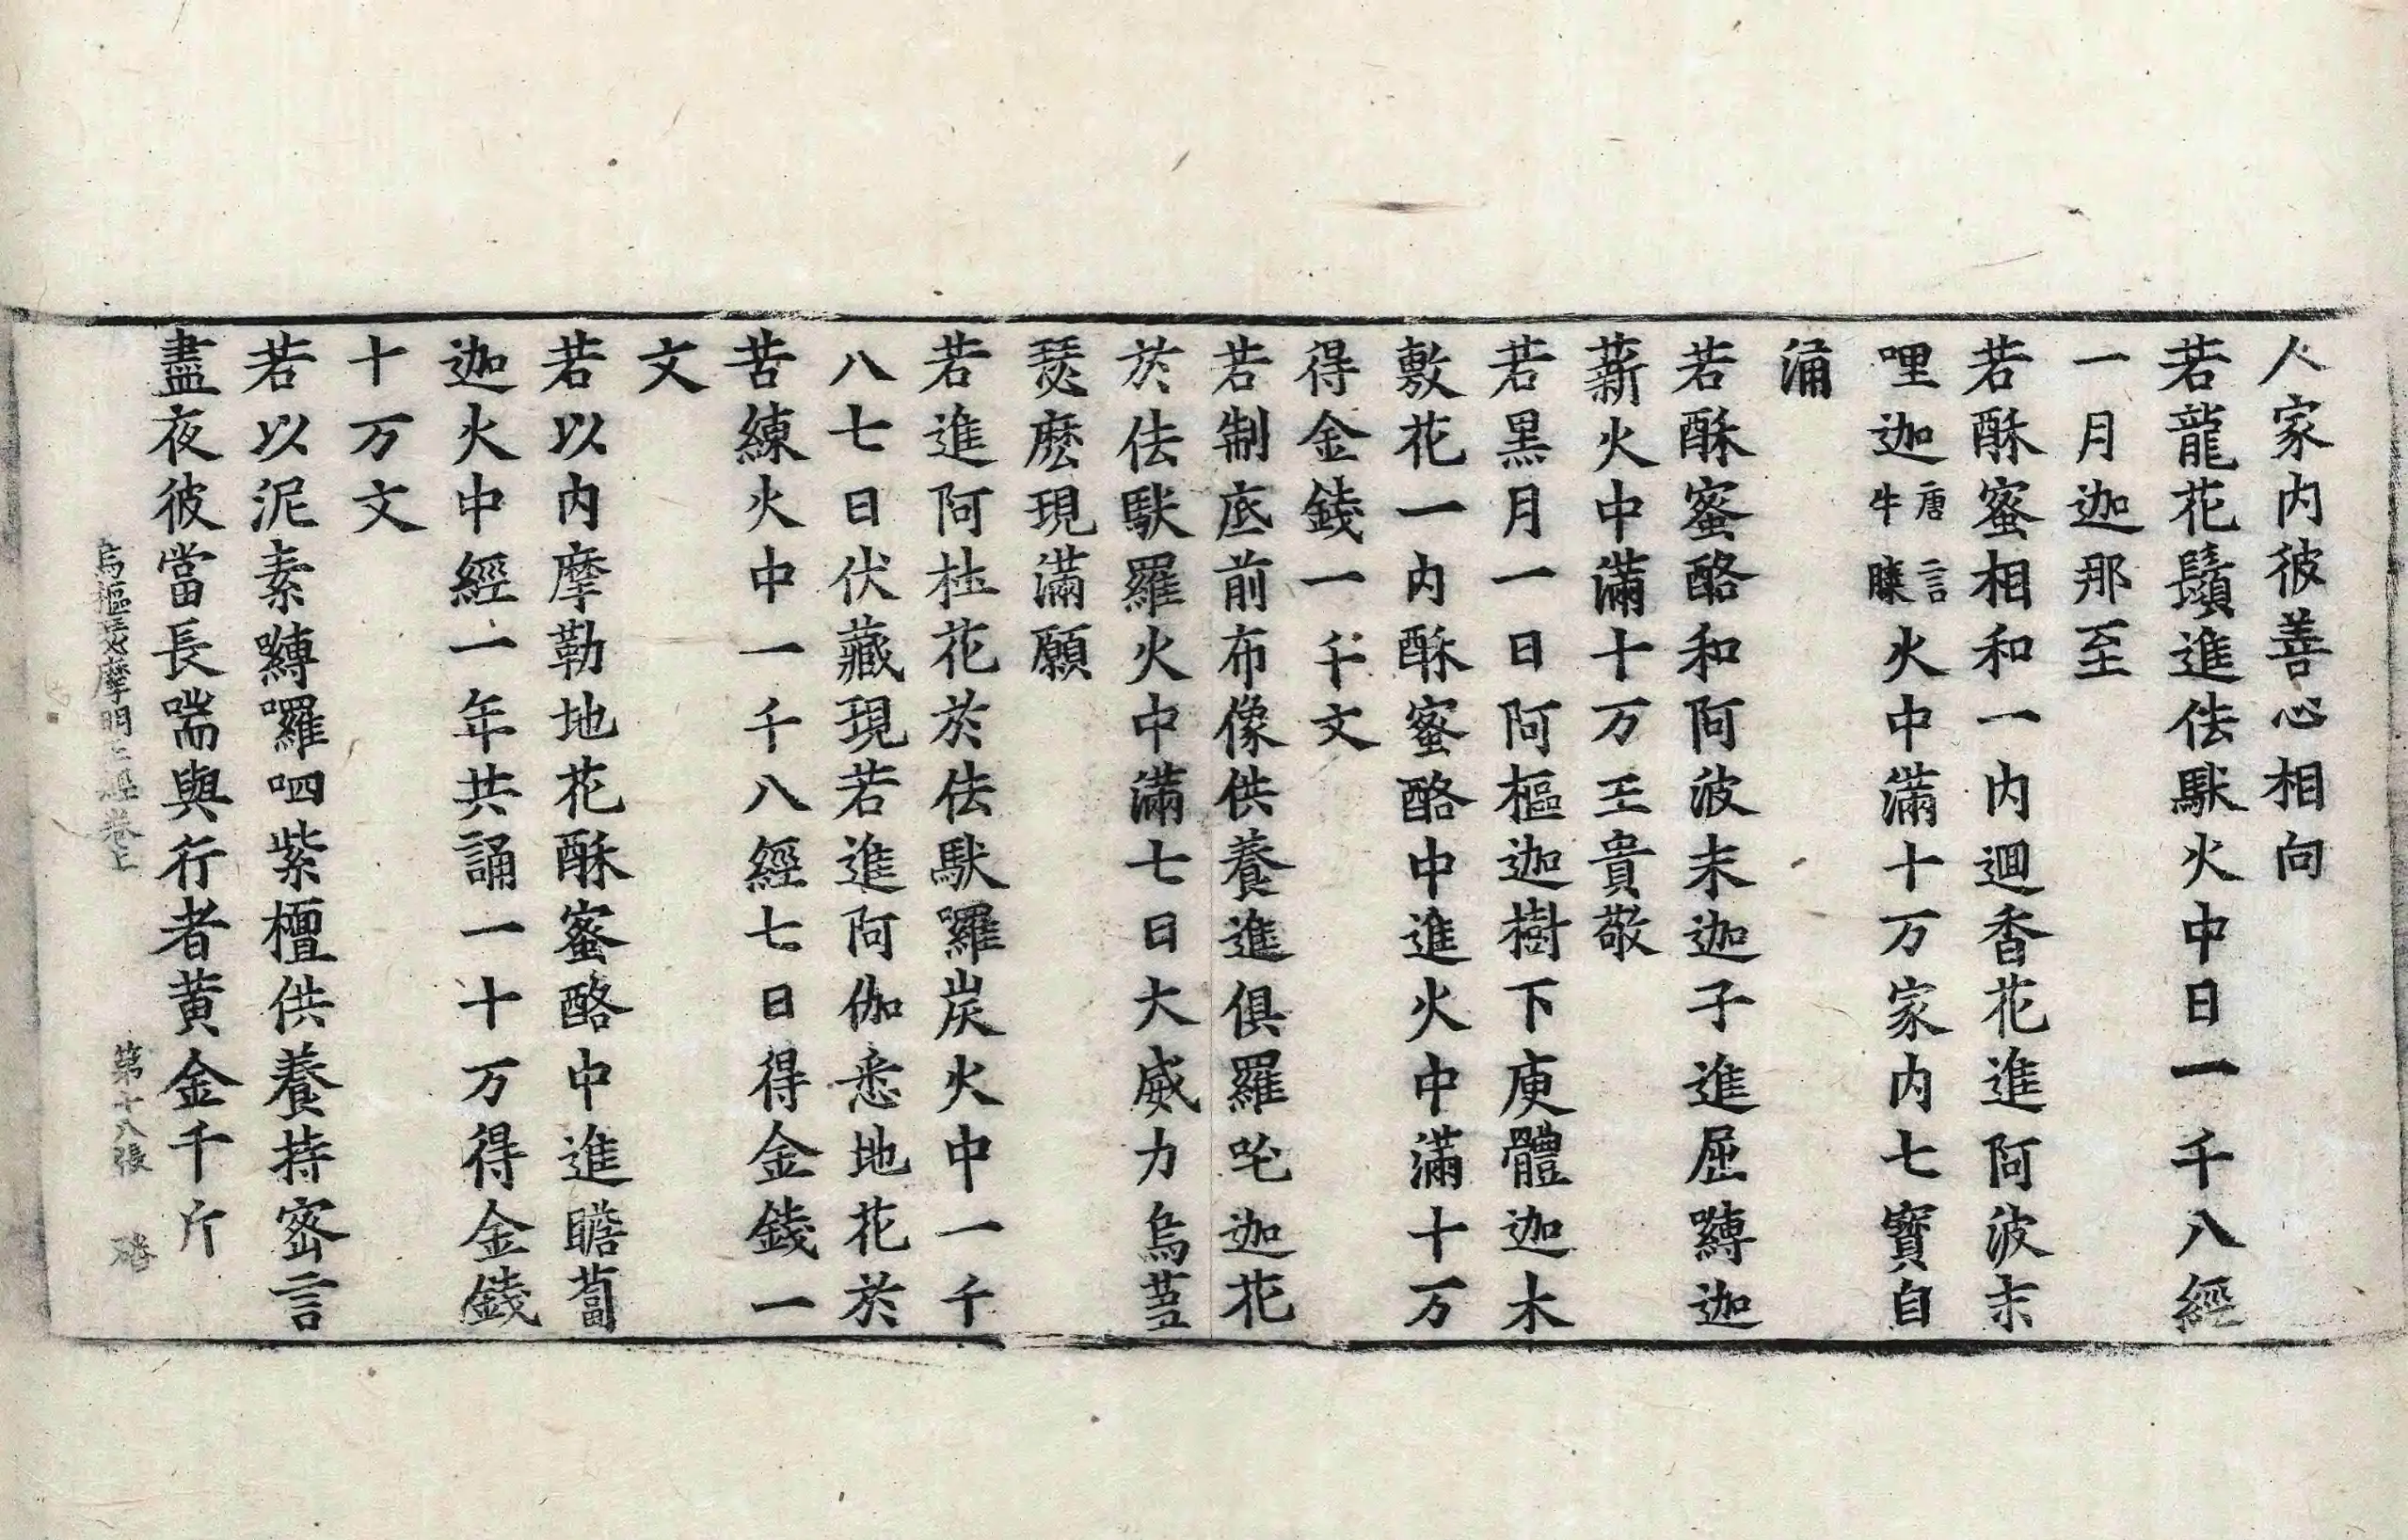 人家内彼善心相向
若龍花鬚進佉馱火中日一千八經
一月迦那至
若酥蜜相和一内迴香花進阿波末
哩迦唐言牛膝火中滿十万家内七寶自
涌
若酥蜜酪和阿波末迦子進屈嚩迦
薪火中滿十万王貴敬
若黒月一日阿樞迦樹下庾體迦木
敷花一内酥蜜酪中進火中滿十万
得金錢一千文
若制底前布像供養進俱羅吒迦花
於佉馱羅火中滿七日大威力烏蒭
瑟麽現滿願
若進阿杜花於佉馱囉炭火中一千
八七日伏藏現若進阿伽悉地花於
苦練火中一千八經七日得金錢一
文
若以内摩勒地花酥蜜酪中進瞻蔔
迦火中經一年共誦一十万得金錢
十万文
若以泥素嚩囉呬紫檀供養持密言
盡夜彼當長喘與行者黄金千斤
烏樞瑟摩明王經卷上 第十八張